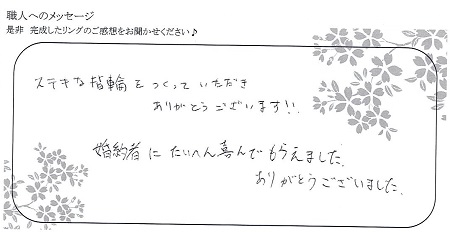 職人へのメッセージ
是非 完成したリングのご感想をお聞かせください♪
ステキな指輪をつくっていただき
ありがとうございます!!
婚約者にたいへん喜んでもらえました。
ありがとうございました。